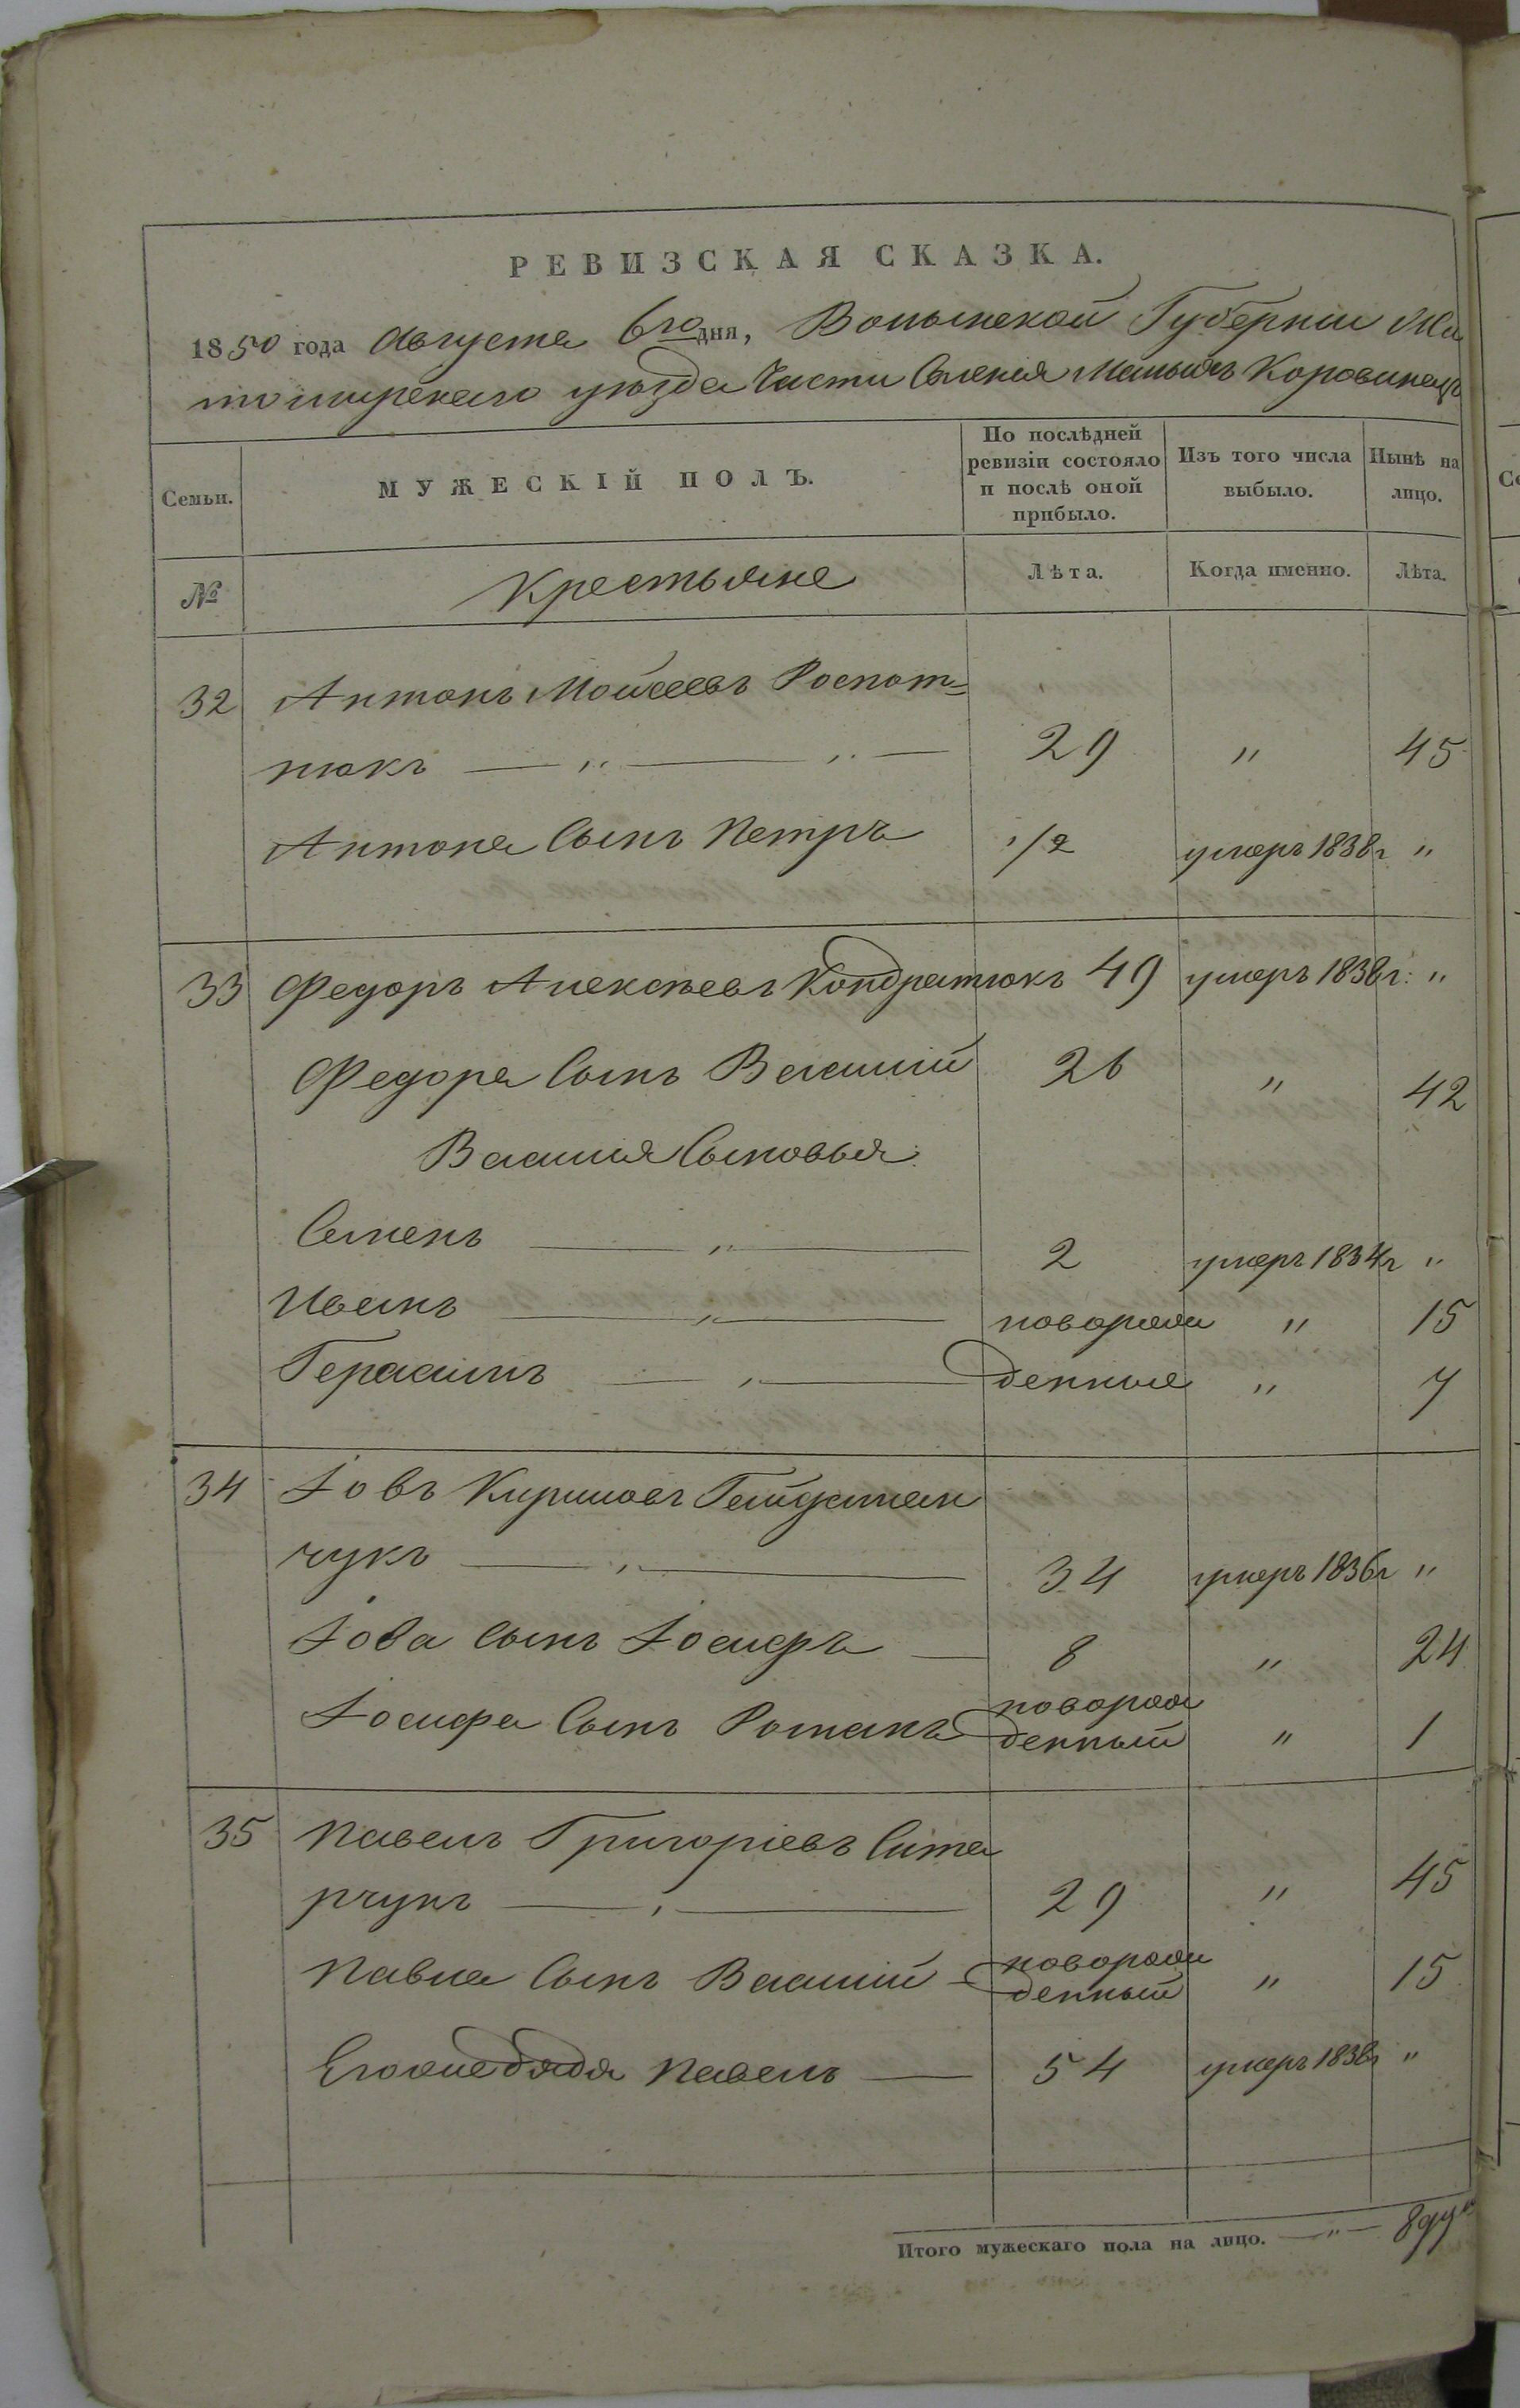 РЕВИЗСКАЯ СКАЗКА.
1850 года Августа 6го дня, Волынской Губернии Жи
томирскаго уѣзда Части Селения Малыхъ Коровинецъ
Семьи.
МУЖЕСКІЙ ПОЛЪ.
По послѣдней ревизіи состояло и послѣ оной прибыло.
Изъ того числа выбыло.
Нынѣ на лицо.
№ Крестьяне Лѣта. Когда именно. Лѣта.
32 Антонъ Мойсеевъ Роспот=
нюкъ — „ — „ — 29 „ 45
Антона Сынъ Петръ 1/2 умеръ 1838г „
33 Федоръ Алексѣевъ Кондратюкъ 49 умеръ 1838г: „
Федора Сынъ Василий 26 „ 42
Василия Сыновья:
Семенъ — „ — 2 умеръ 1834г „
Иванъ — „ — новорож „ 15
Герасимъ — „ — денные „ 7
34 Іовъ Кириловъ Гайдаман
чукъ — „ — 34 умеръ 1836г „
Іова Сынъ Іосифъ — 8 „ 24
Іосифа Сынъ Романъ новорож
денный „ 1
35 Павелъ Григоріевъ Сита
рчукъ — „ — 29 „ 45
Павла Сынъ Василий — новорож
денный „ 15
Егоже дядя Павелъ — 54 умеръ 1838г „
Итого мужескаго пола на лицо. — „ — 8